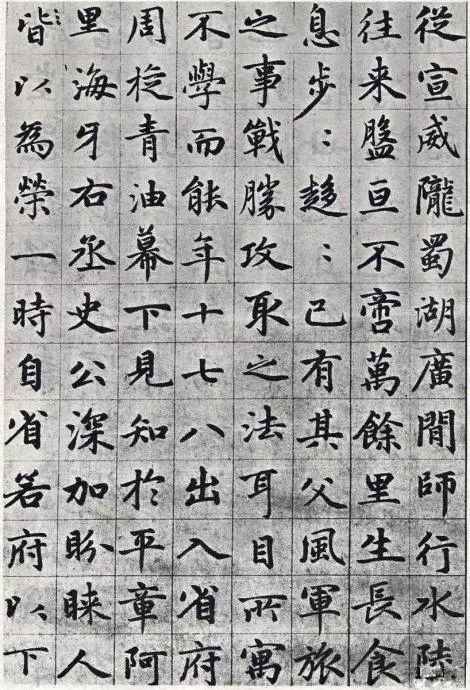 從宣威隴蜀湖廣間師行水陸
往来盤亘不啻萬餘里生長食
息步〻趍〻已有其父風軍旅
之事戰勝攻取之法耳目所寓
不學而能年十七八出入省府
周旋青油幕下見知於平章阿
里海牙右丞史公深加盼睐人
皆以為榮一時自省若府以下